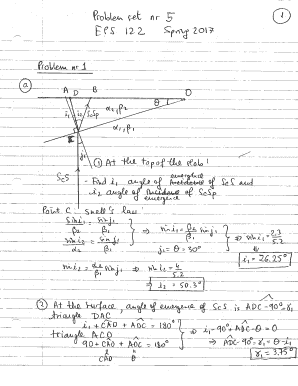 Problem set nr 5
①
EPS 122 Spring 2017
Problem nr 1
ⓐ
A D B O
i₁ i₂ ScSp α₂, β₂ θ
α₁, β₁
C
j₁
ScS
① At the top of the slab!
- Find i₁ angle of emergence of ScS and
i₂ angle of emergence of ScSp
Point C: Snell's law
sin i₁/β₂ = sin j₁/β₁
sin i₂/α₂ = sin j₁/β₁
⇒ sin i₁ = β₂/β₁ sin j₁
j₁ = θ = 30°
⇒ sin i₁ = 2.3/5.2
⇓
i₁ = 26.25°
sin i₂ = α₂/β₁ sin j₁ ⇒ sin i₂ = 4/5.2
⇒ i₂ = 50.3°
② At the surface, angle of emergence of ScS is ADC - 90° = γ₁
triangle DAC
i₁ + CAD + ADC = 180°
triangle ACO
90 + CAO + AOC = 180°
CAD θ
⇒ i₁ - 90° + ADC - θ = 0
⇒ ADC - 90° = γ₁ = θ - i₁
γ₁ = 3.75°